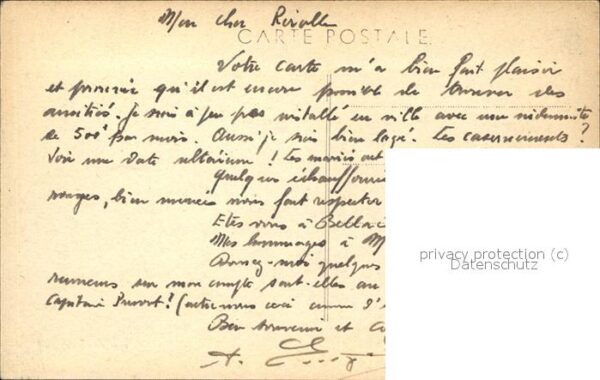 Mon cher Rivolle
CARTE POSTALE
Votre carte m'a bien fait plaisir
et prouvé qu'il est encore possible de trouver des
amitiés. Je suis à peu pas installé en ville avec une indemnité
de 500f par mois. Aussi je suis bien logé. Les casernements ?
Voir une date ultérieure ! Les mariés ont
quelques
rouges, bien nous font respecter
Etes vous à
Mes hommages à M
Donnez-moi quelques
rumeurs sur mon compte sont-elles au
capitaine ! (entre nous ceci comme
Bon souvenir et
A.
privacy protection (c)
Datenschutz